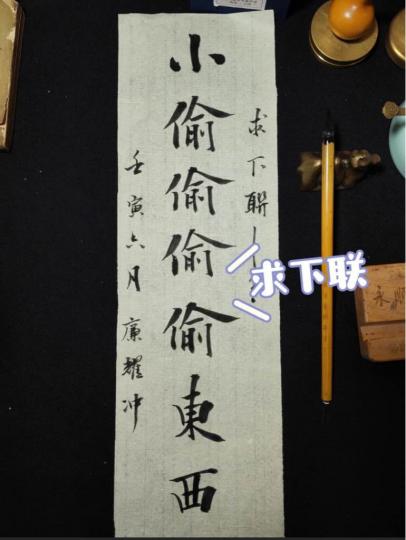 求下聯
小偷偷偷偷東西
壬寅六月 廉耀冲
求下联
永順